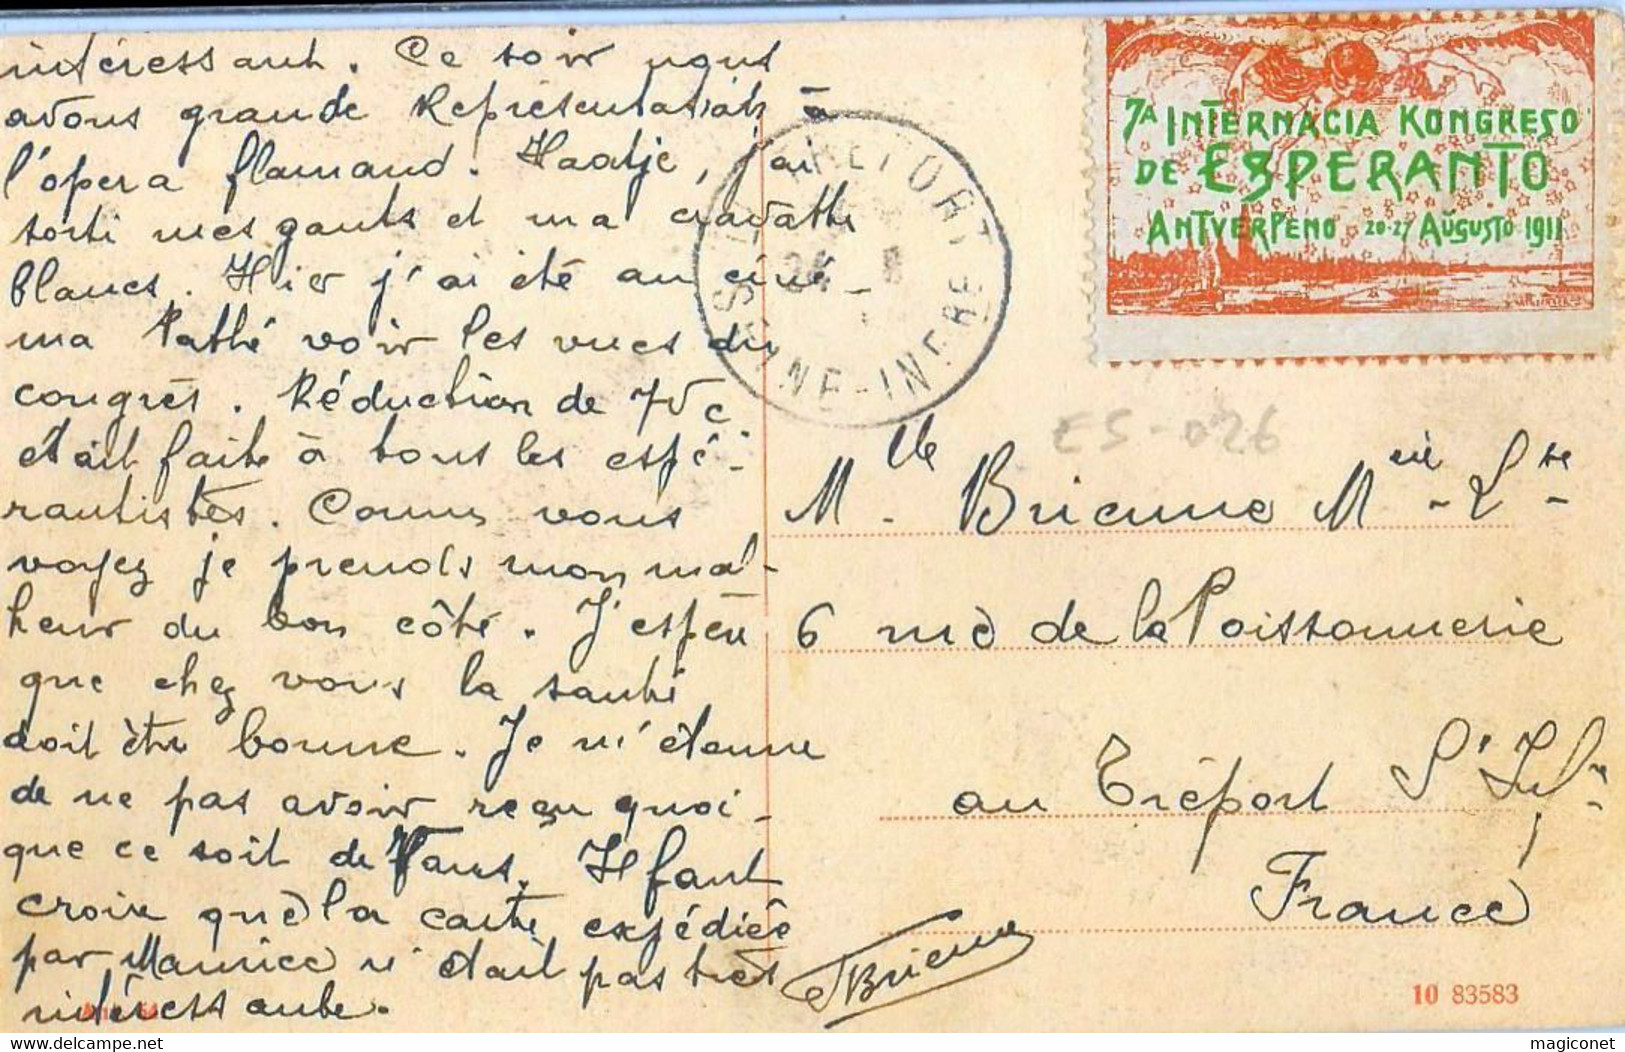 intéressant. Ce soir nous
avons grande Représentation à
l'opera flamand. Haatje, j'ai
sorti mes gants et ma cravatte
blancs. Hier j'ai été au ciné-
ma Pathé voir les vues du
congrès. Réduction de 
était faite à tous les espé-
rantistes. Comme vous
voyez je prends mon mal-
heur du bon côté. J'espère
que chez vous la santé
doit être bonne. Je m'étonne
de ne pas avoir reçu quoi-
que ce soit de Vous. Il faut
croire que la carte expédiée
par Maurice n'était pas très
intéressante.
7A INTERNACIA KONGRESO
DE ESPERANTO
ANTVERPENO 20-27 AŬGUSTO 1911
SEINE-INFRE
ES-026
Mlle Brienne Mie-Lse
6 rue de la Poissonnerie
au Tréport
France
Brienne
10 83583
magiconet